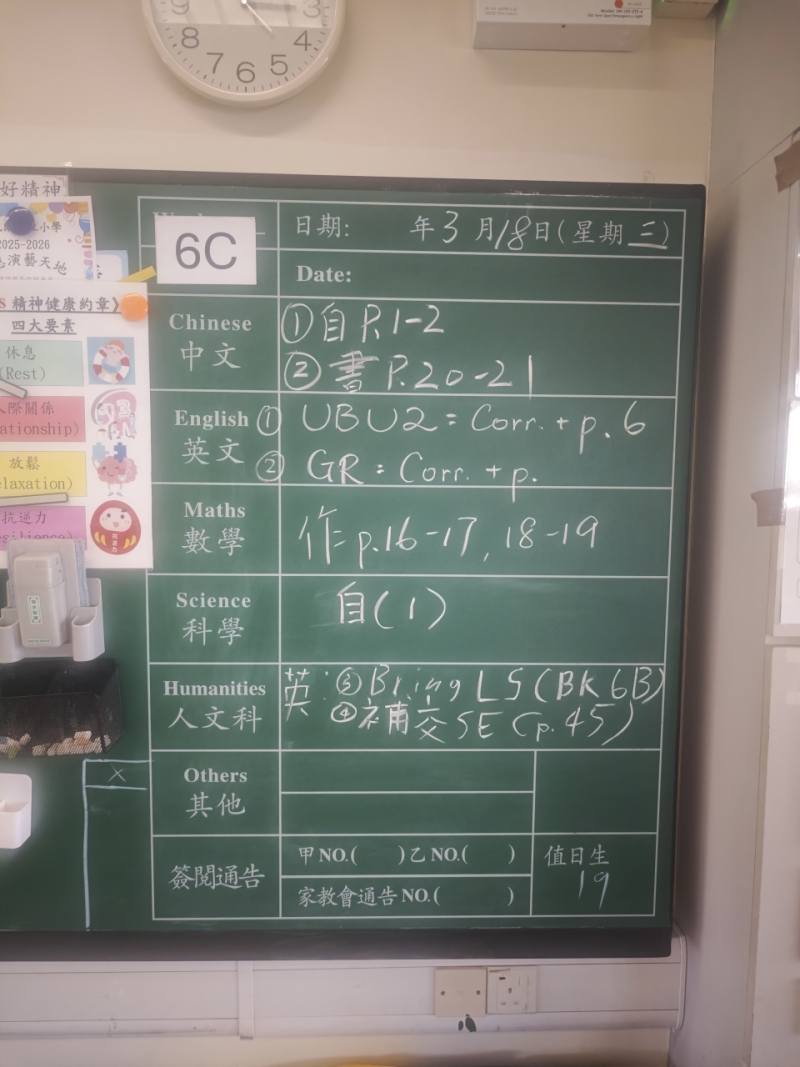 3
4
5
6
7
8
9
好精神
2025-2026
演藝天地
精神健康約章》
四大要素
休息
(Rest)
人際關係
放鬆
抗逆力
6C
日期: 年3月18日(星期三)
Date:
Chinese
中文
①自P.1-2
②書P.20-21
English
英文
① UBU2: Corr. + p. 6
② GR: Corr. + p.
Maths
數學
作: p.16-17, 18-19
Science
科學
自(1)
Humanities
人文科
英: ③Bring LS (BK 6B)
④補交SE (p.45)
Others
其他
簽閱通告
甲NO.( )乙NO.( )
家教會通告NO.( )
值日生
19